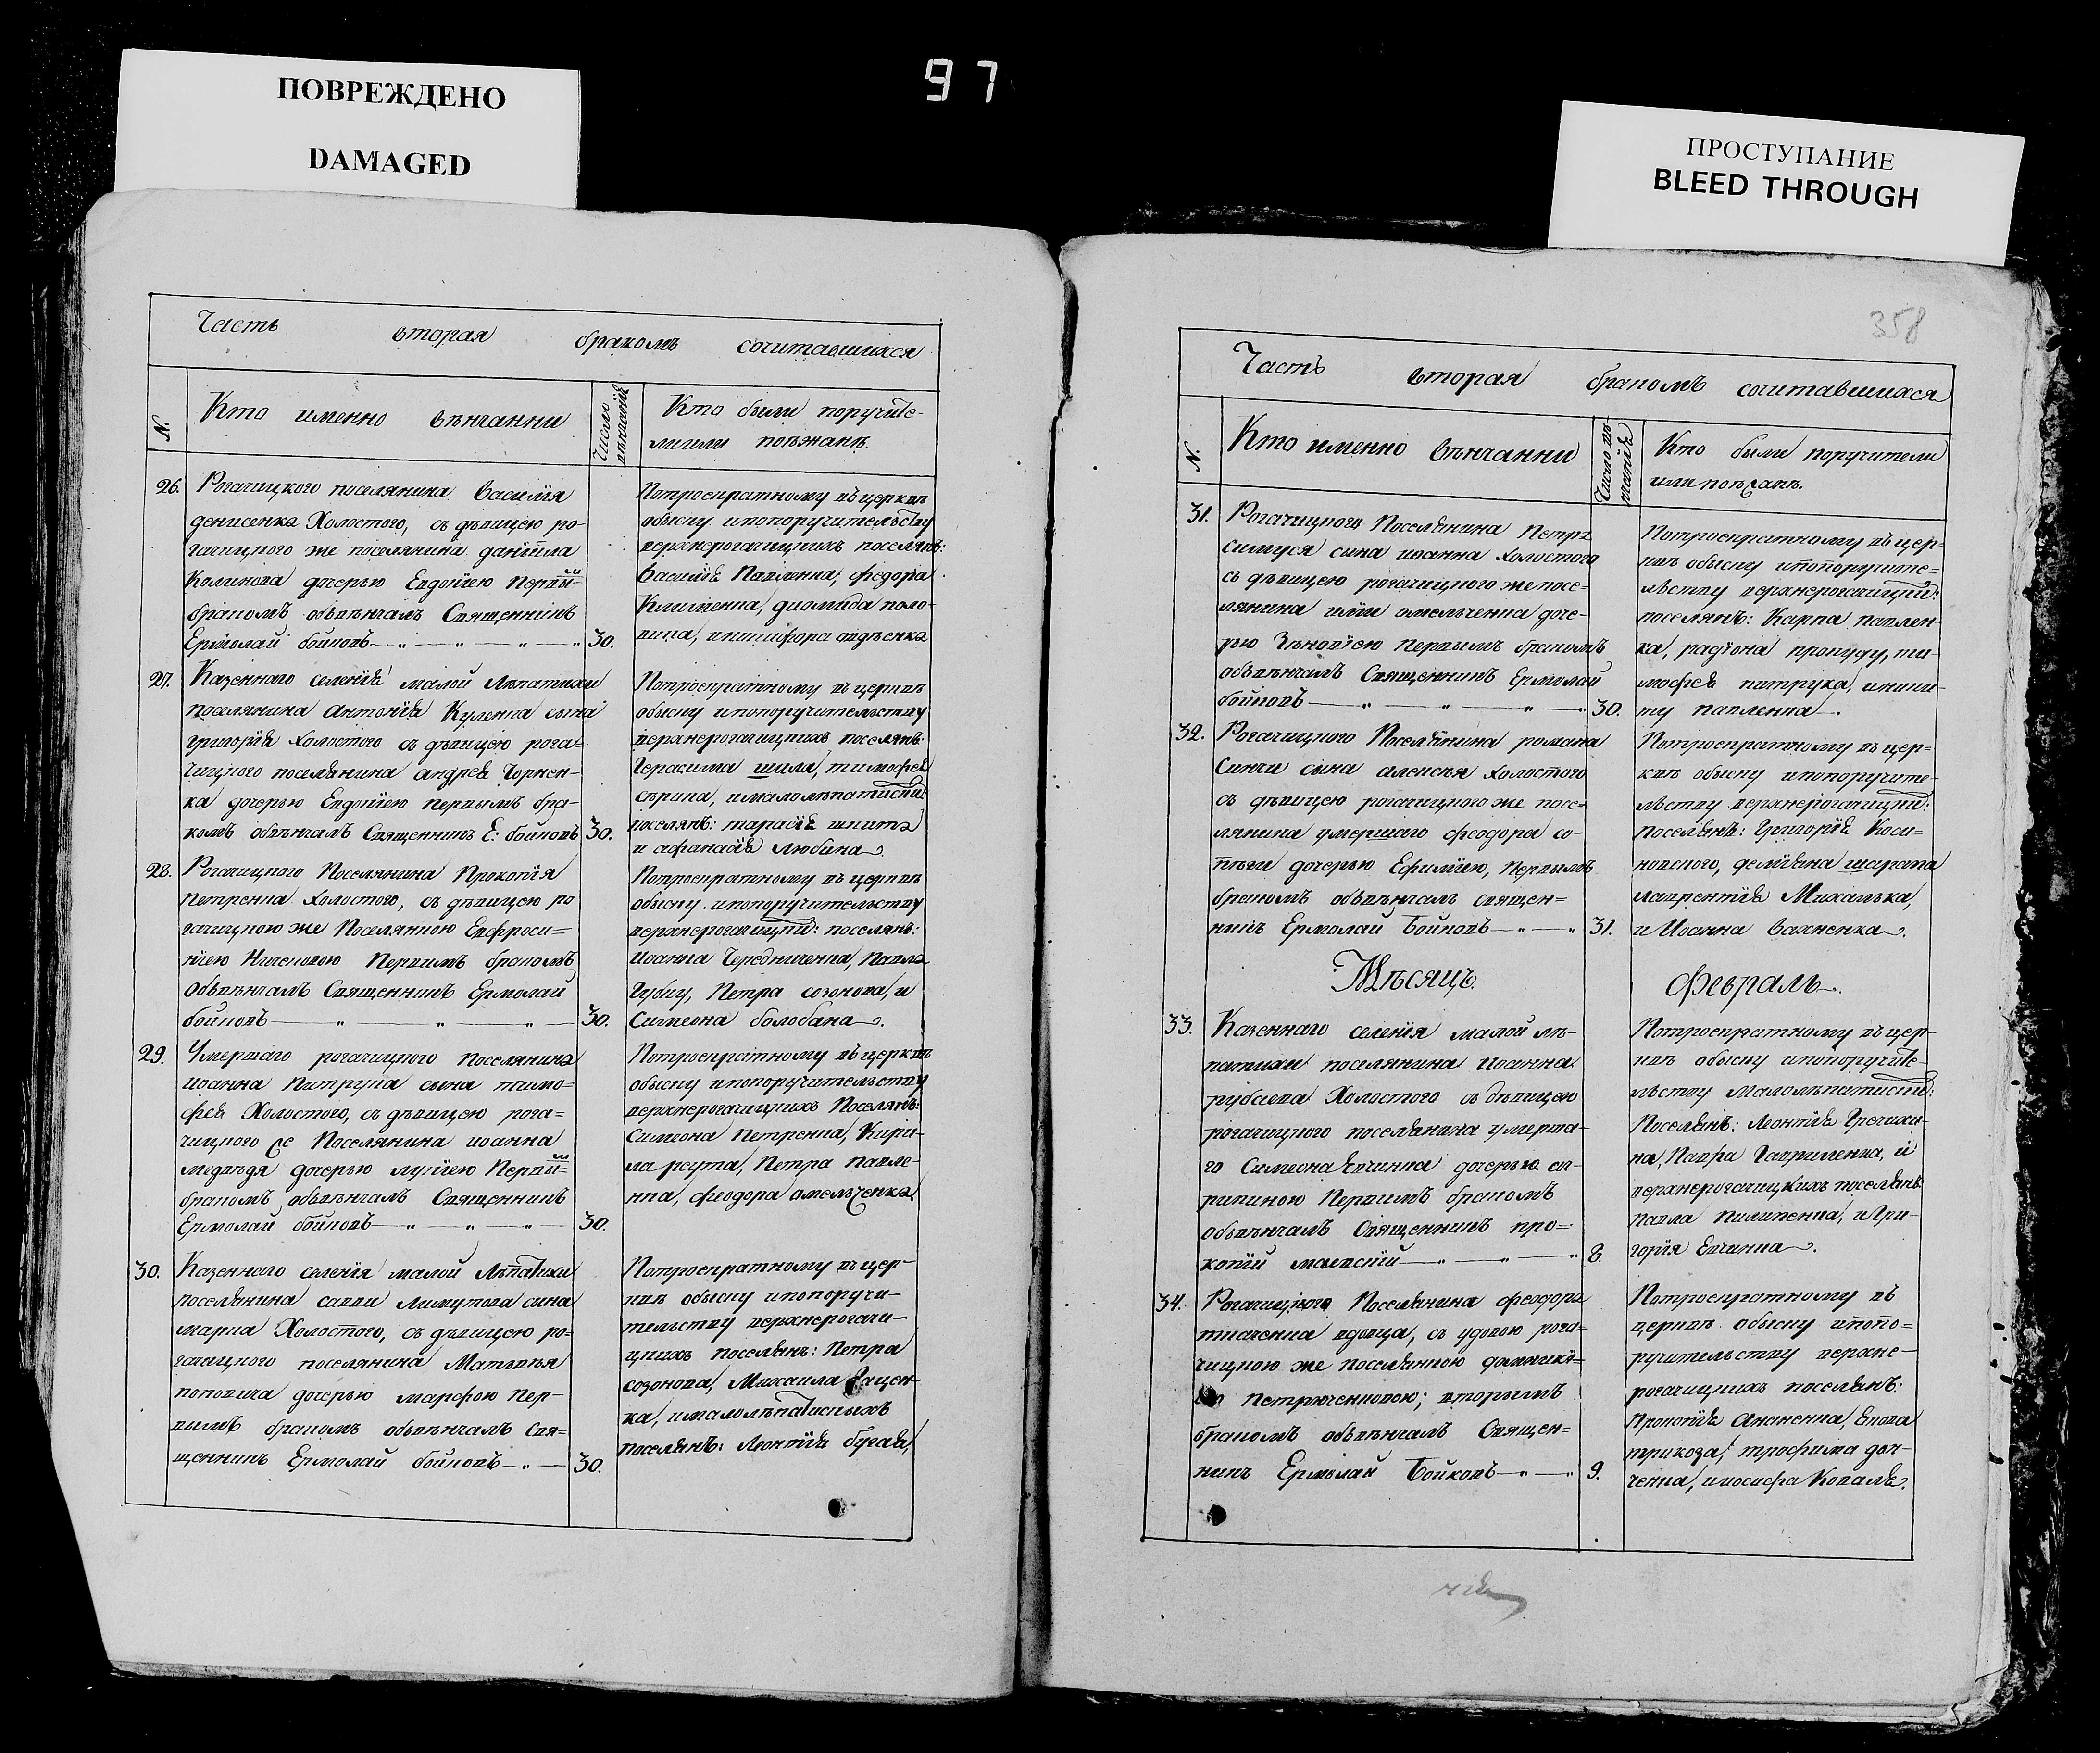 ПОВРЕЖДЕНО
DAMAGED
97
ПРОСТУПАНИЕ
BLEED THROUGH
Часть вторая бракомъ сочитавшихся
N. Кто именно вѣнчанни Число вѣнчанія Кто были поручите-
ли или поѣзжанѣ.
26. Рогачицкого поселянина василія
денисенка Холостого, съ дѣвицею ро-
гачицкого же поселянина даніила
Коликова дочерью Евдокіею Первы-
бракомъ обвѣнчалъ Священникъ
Ермолай бойковъ 30.
Потроекратному въ церквѣ
обыску ипопоручительству
верхнерогачицкихъ поселянъ:
василія Павленка, федора
Клименка, диомида поло-
вика, иникифора авдѣенка
27. Казеннаго селенія малой Лѣпатихи
поселянина антонія Куленка сына
григорія холостого съ дѣвицею рога-
чицкого поселянина андрея Чорнен-
ка дочерью Евдокіею первымъ бра-
комъ обвѣнчалъ Священникъ Е: бойковъ 30.
Потроекратному въ церквѣ
обыску ипопоручительству
верхнерогачицкихъ поселянъ:
Герасима шила, тимофея
сѣрика, ималолѣпатиски:
поселянъ: тарасія шкита
и афанасія Любика.
28. Рогачицкого Поселянина Прокопія
Петренка Холостого, съ дѣвицею ро
гачицкою же Поселянкою Евфроси=
ніею Первымъ бракомъ
обвѣнчалъ Священникъ Ермолай
бойковъ 30.
Потроекратному въ церквѣ
обыску ипопоручительству
верхнерогачицки: поселянъ:
иоанна Чередниченка, Павла
Губку, Петра созонова, и
Симеона болобана.
29. Умершаго рогачицкого поселянина
иоанна Питрука сына тимо=
фея Холостого, съ дѣвицею рога=
чицкого же Поселянина иоанна
медвѣдя дочерью лукіею Первы=
бракомъ обвѣнчалъ Священникъ
Ермолай бойковъ 30.
Потроекратному въ церквѣ
обыску ипопоручительству
верхнерогачицкихъ Поселянъ:
Симеона Петренка, Кири-
ла реута, Петра павле-
нка, феодора омельченка.
30. Казеннаго селенія малой Лѣпатихи
поселянина саввы Ликутова сына
марка Холостого, съ дѣвицею ро-
гачицкого поселянина Матвѣя
поповича дочерью марфою пер-
вымъ бракомъ обвѣнчалъ Свя=
щенникъ Ермолай бойковъ 30.
Потроекратному въ цер-
квѣ обыску ипопоручи-
тельству верхнерогачи-
цкихъ поселянъ: Петра
созонова, Михаила
ка, ималолѣпатискихъ
поселянъ: Леонтія бугая,
358
Часть вторая бракомъ сочитавшихся
N. Кто именно вѣнчанни Число вѣ-
нчанія Кто были поручители
или поѣзжанѣ.
31. Рогачицкого Поселянина Петра
симуся сына иоанна холостого
съ дѣвицею рогачицкого же посе-
лянина иліи омельченка доче-
рью Зѣновіею первымъ бракомъ
обвѣнчалъ Священникъ Ермолай
бойковъ 30.
Потроекратному въ цер=
квѣ обыску ипопоручите=
льству верхнерогачицки:
поселянъ: Карпа павлен-
ка, радіона прокуду, ти-
мофея питрука, иники-
ту павленка.
32. Рогачицкого Поселянина романа
Синчи сына алексѣя холостого
съ дѣвицею рогачицкого же посе=
лянина умершаго феодора со-
пѣги дочерью Ефиміею, первымъ
бракомъ обвѣнчалъ священ=
никъ Ермолай Бойковъ 31.
Потроекратному въ цер=
квѣ обыску ипопоручите-
льству верхнерогачицки:
поселянъ: Григорія Коси=
новского, демьяна шарапа
лаврентія Михалька,
и Иоанна вахненка.
Мѣсяцъ. Февраль.
33. Казеннаго селенія малой лѣ-
патихи поселянина иоанна
рубаева Холостого съ дѣвицею
рогачицкого поселянина умерша-
го Симеона Евчинка дочерью ек-
териною Первымъ бракомъ
обвѣнчалъ Священникъ про=
копій маевскій 8.
Потроекратному въ цер-
квѣ обыску ипопоручите-
льству малолѣпатиски:
Поселянъ: Леонтія Гречихи-
на, Лавра Гавриленка, и
верхнерогачицкихъ поселянъ
павла пилипенка, игри-
горія Евчинка.
34. Рогачицкого Поселянина феодора
ткаченка вдовца, съ удовою рога-
чицкою же поселянкою домникі-
ею Петрюченковою; вторымъ
бракомъ обвѣнчалъ Священ=
никъ Ермолай Бойковъ 9.
Потроекратному въ
церквѣ обыску ипопо=
ручительству верхне-
рогачицкихъ поселянъ:
прокопія ананенка, якова
трикоза, трофима дья-
ченка, иосифа Коваля.